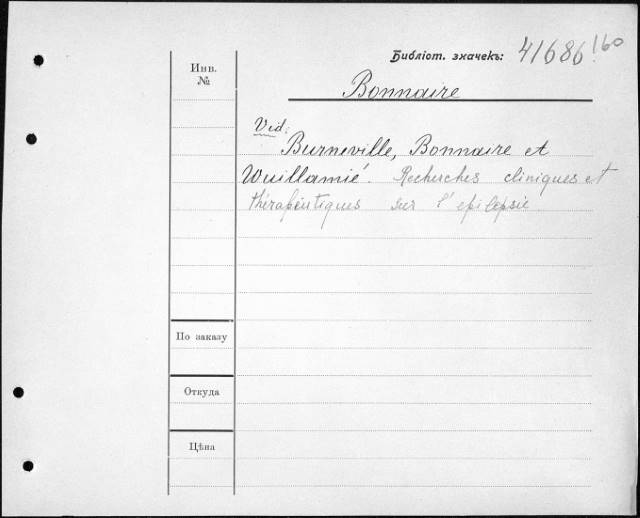 Библіот. значекъ: 41686/60
Инв.
№
Bonnaire
Vid.
Burneville, Bonnaire et
Wuillamié. Recherches cliniques et
thérapeutiques sur l'epilepsie
По заказу
Откуда
Цѣна